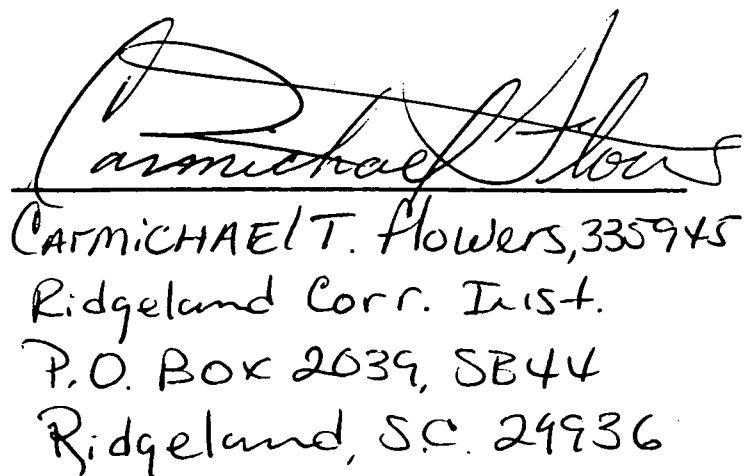 Carmichael Flowers
CArmiCHAEl T. flowers, 335945
Ridgeland Corr. Inst.
P.O. Box 2039, SB44
Ridgeland, S.C. 29936